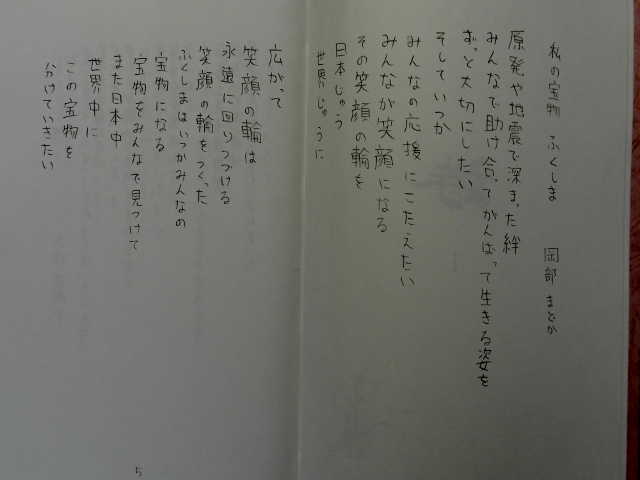 私の宝物 ふくしま 岡部 まどか
原発や地震で深まった絆
みんなで助け合ってがんばって生きる姿を
ずっと大切にしたい
そしていつか
みんなの応援にこたえたい
みんなが笑顔になる
その笑顔の輪を
日本じゅう
世界じゅうに
広がって
笑顔の輪は
永遠に回りつづける
笑顔の輪をつくった
ふくしまはいつかみんなの
宝物になる
宝物をみんなで見つけて
また日本中
世界中に
この宝物を
分けていきたい
5